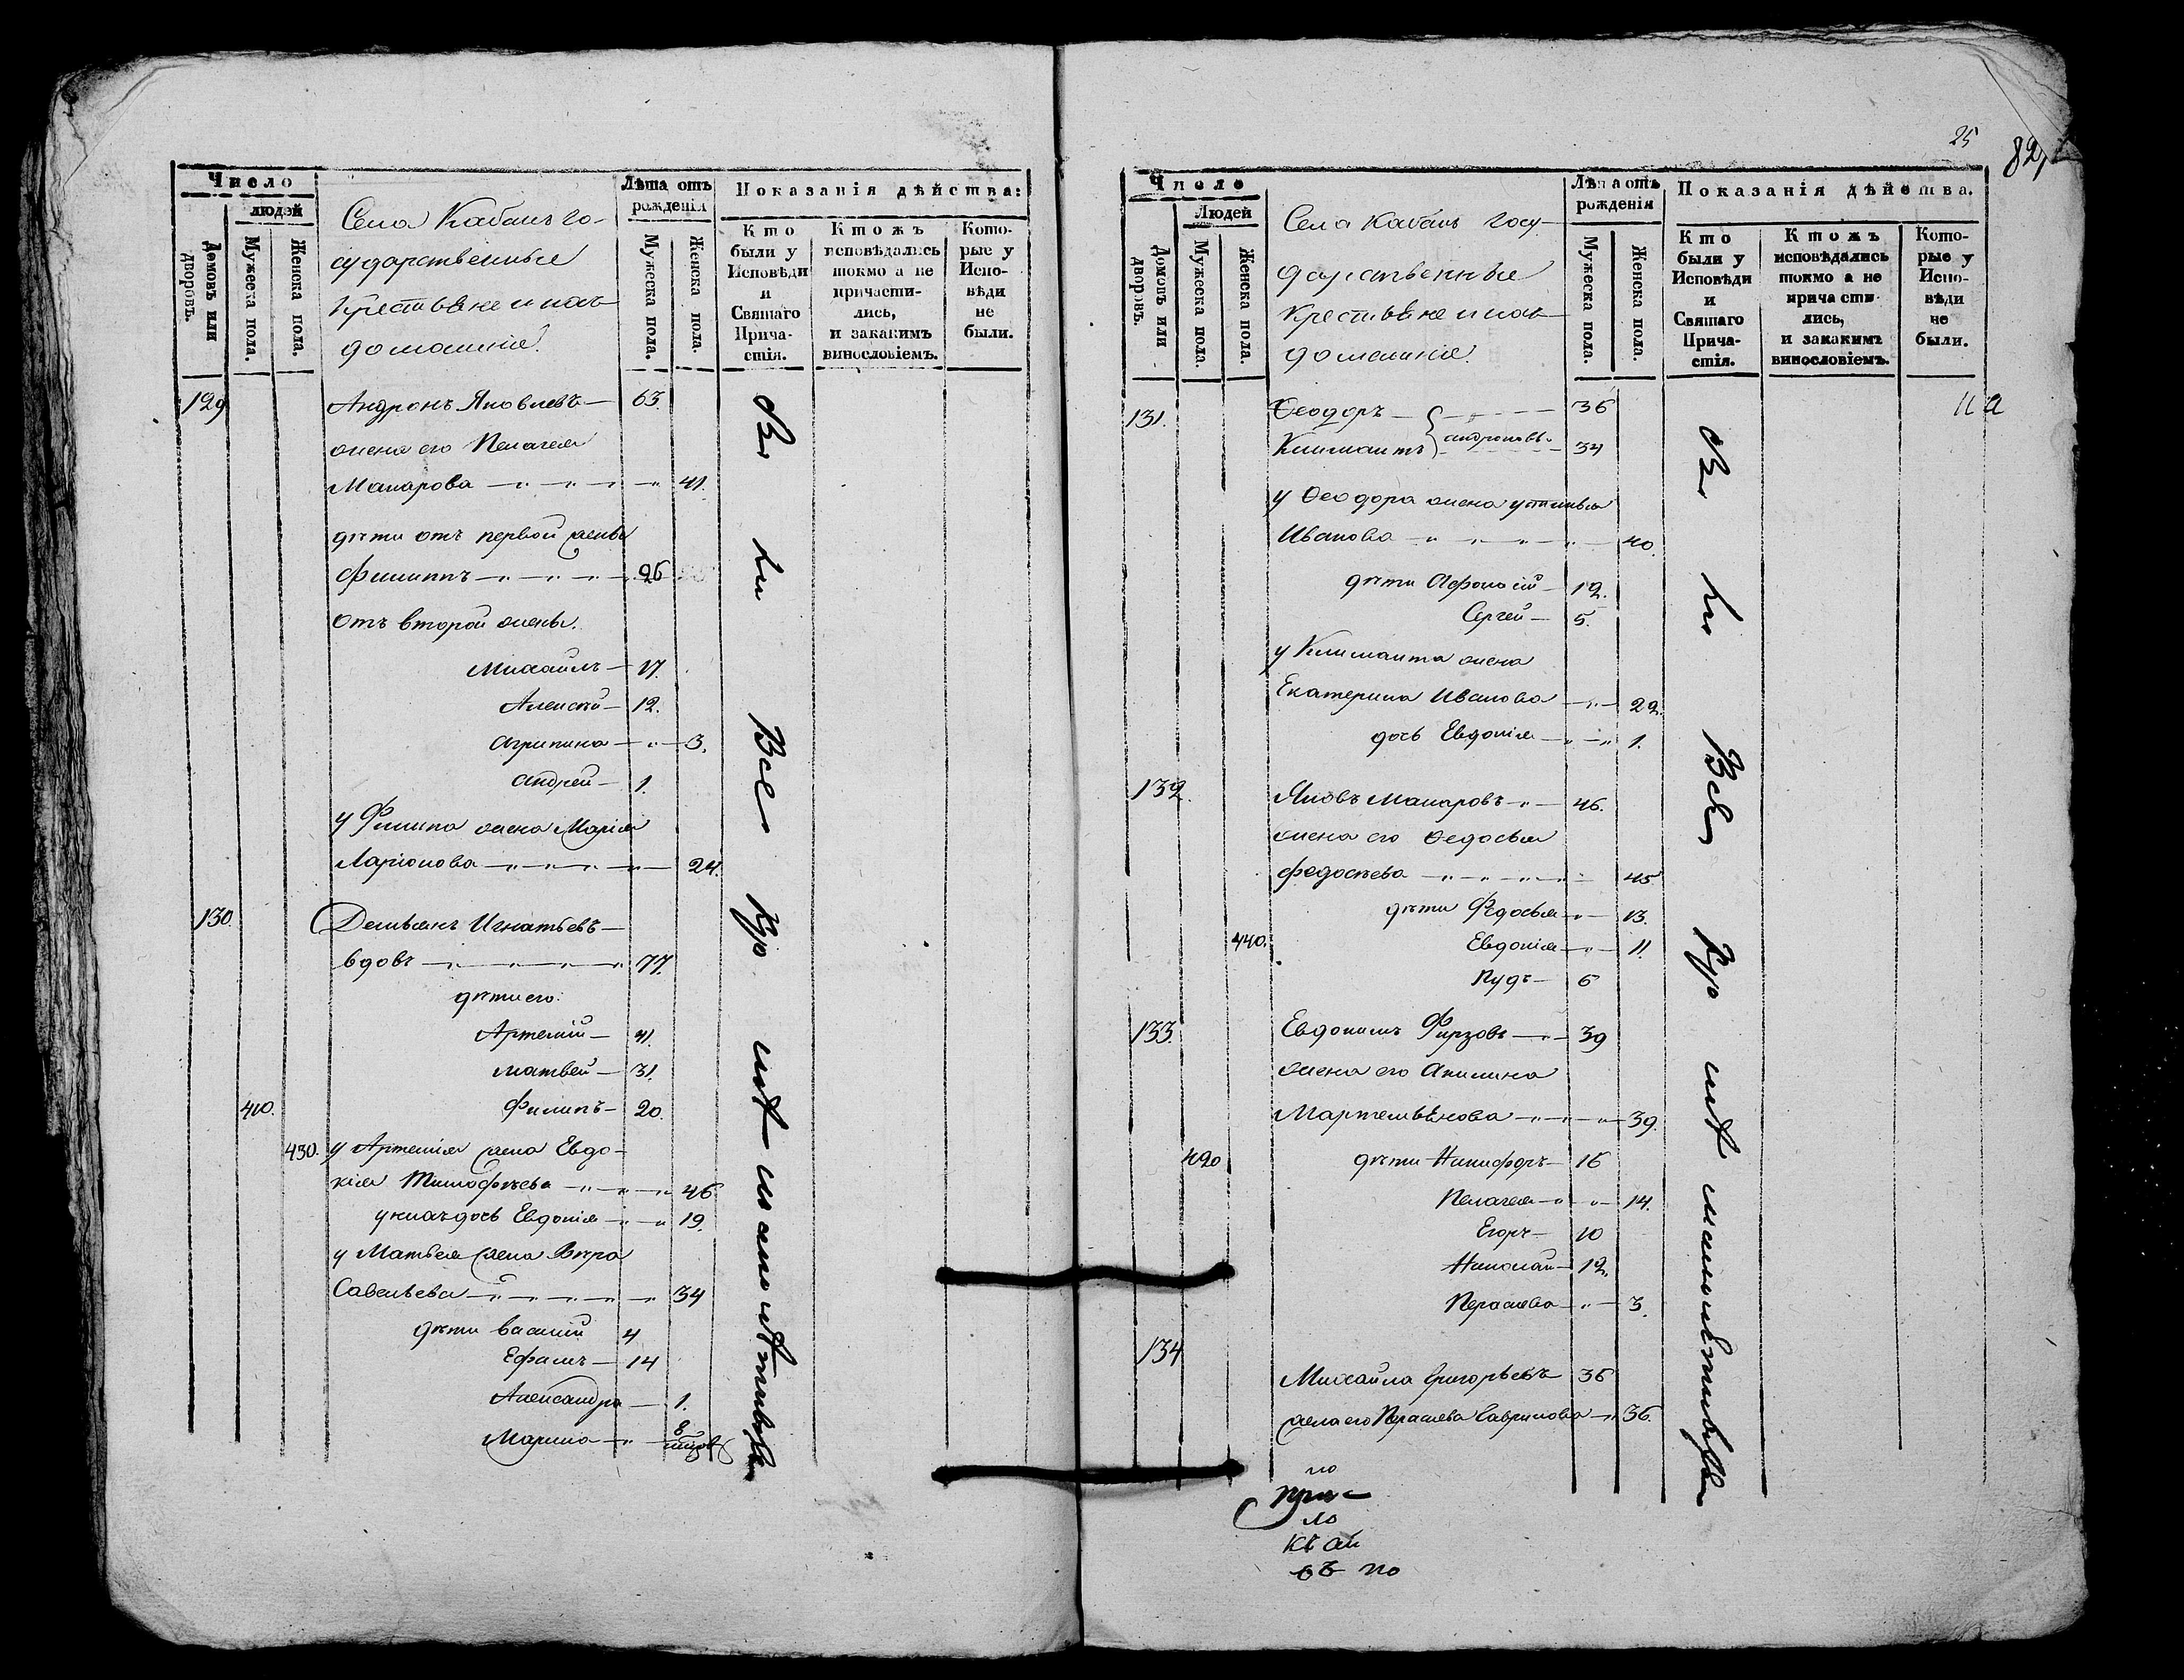 Число
людей
Домовъ или дворовъ.
Мужеска пола.
Женска пола.
Села Кабанъ го-
сударственные
крестьяне и ихъ
домашніе.
Лѣта отъ
рожденія
Мужеска пола.
Женска пола.
Показанія дѣйства:
Кто были у Исповѣди и Святаго Прича-стія.
Ктожъ исповѣдались токмо а не причасти-лись, и закакимъ винословіемъ.
Кото-рые у Испо-вѣди не были.
129 Андронъ Яковлевъ — 63.
жена его Пелагея
Макарова — 41.
дѣти отъ первой жены
Филиппъ — 26
отъ второй жены.
Михаилъ — 17.
Алексій — 12.
Агрипина — 3.
Андрей — 1.
у Филипа жена Марія
Ларіонова — 24.
130. Демьянъ Игнатьевъ —
вдовъ — 77.
дѣти его:
Артемій — 41.
Матвей — 31.
410. Филипъ — 20.
430. у Артемія жена Евдо-
кія Тимофѣева — 46
у нихъ дочь Евдокія — 19.
у Матвея жена Вѣра
Савельева — 34
дѣти Василій 4
Ефимъ — 14
Александра — 1.
Марина —
Всѣ
25
82,
Число
Людей
Домовъ или дворовъ.
Мужеска пола.
Женска пола.
Села Кабанъ госу-
дарственные
крестьяне и ихъ
домашніе.
Лѣта отъ
рожденія
Мужеска пола.
Женска пола.
Показанія дѣйства.
Кто были у Исповѣди и Святаго Прича-стія.
Ктожъ исповѣдались токмо а не причасти-лись, и закакимъ винословіемъ.
Кото-рые у Испо-вѣди не были.
131. Ѳеодоръ — 36
Климантъ Андроновы — 34
у Ѳеодора жена Устинья
Иванова — 40.
дѣти Афонасій — 12.
Сергей — 5.
у Климанта жена
Екатерина Иванова — 22.
дочь Евдокія — 1.
132. Яковъ Макаровъ — 46.
жена его Ѳедосья
Федосѣева — 45
дѣти Федосья — 13.
440. Евдокія — 11.
Пудъ — 6
133. Евдокимъ Фирзовъ — 39
жена его Акилина
Мартемьянова — 39.
420 дѣти Никифоръ — 16
Пелагея — 14.
Егоръ — 10
Николай — 12.
Парасева — 3.
134
Михайла Григорьевъ 36
жена его Парасева Гаврилова — 36.
Всѣ